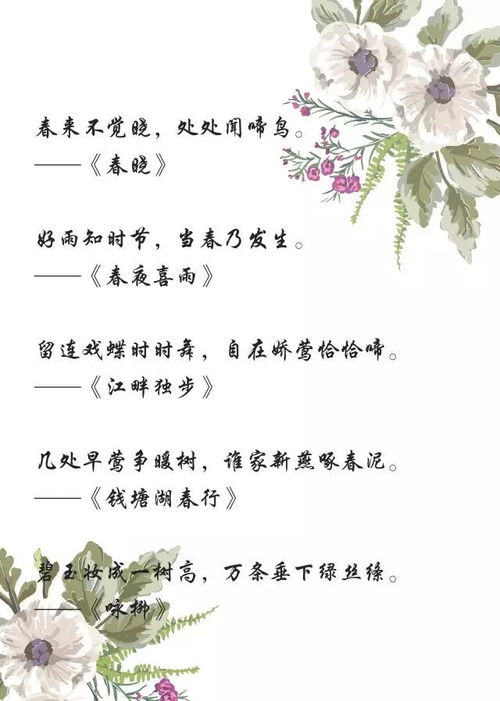 春来不觉晓，处处闻啼鸟。
——《春晓》
好雨知时节，当春乃发生。
——《春夜喜雨》
留连戏蝶时时舞，自在娇莺恰恰啼。
——《江畔独步》
几处早莺争暖树，谁家新燕啄春泥。
——《钱塘湖春行》
碧玉妆成一树高，万条垂下绿丝绦。
——《咏柳》